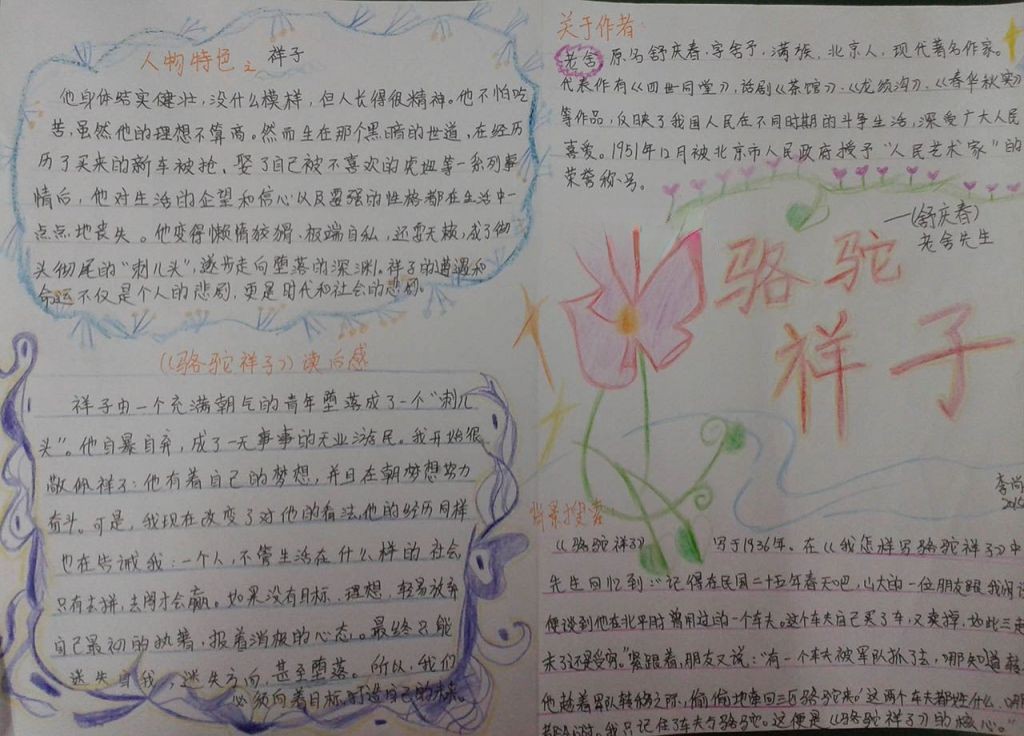 人物特色之 祥子
他身体结实健壮，没什么模样，但人长得很精神。他不怕吃
苦，虽然他的理想不算高。然而生在那个黑暗的世道，在经历
历了买来的新车被抢、娶了自己被不喜欢的虎妞等一系列事
情后，他对生活的企望和信心以及要强的性格都在生活中一
点点地丧失。他变得懒惰狡猾、极端自私，还耍无赖，成了彻
头彻尾的“刺儿头”，逐步走向堕落的深渊。祥子的遭遇和
命运不仅是个人的悲剧，更是时代和社会的悲剧。
《骆驼祥子》读后感
祥子由一个充满朝气的青年堕落成了一个“刺儿
头”。他自暴自弃，成了一无事事的无业游民。我开始很
敬佩祥子：他有着自己的梦想，并且在朝梦想努力
奋斗。可是，我现在改变了对他的看法，他的经历同样
也在告诫我：一个人，不管生活在什么样的社会
只有去拼，去闯才会赢。如果没有目标、理想，轻易放弃
自己最初的执著，报着消极的心态。最终只能
迷失自我，迷失方向，甚至堕落。所以，我们
必须向着目标，打造自己的未来。
关于作者：
老舍 原名舒庆春，字舍予，满族，北京人，现代著名作家。
代表作有《四世同堂》，话剧《茶馆》、《龙须沟》、《春华秋实》
等作品，反映了我国人民在不同时期的斗争生活，深受广大人民
喜爱。1951年12月被北京市人民政府授予“人民艺术家”的
荣誉称号。
—(舒庆春)
老舍先生
骆驼
祥子
李尚
背景搜索：
《骆驼祥子》 写于1936年。在《我怎样写骆驼祥子》中
先生回忆到：“记得在民国二十五年春天吧，山大的一位朋友跟我闲
便谈到他在北平时曾用过的一个车夫。这个车夫自己买了车，又卖掉，如此三起
末了还是受穷。”紧跟着，朋友又说：“有一个车夫被军队抓了去，哪知道转
他趁着军队转移之际，偷偷地牵回三匹骆驼来。这两个车夫都姓什么
我只记住了车夫与骆驼。这便是《骆驼祥子》的核心。”